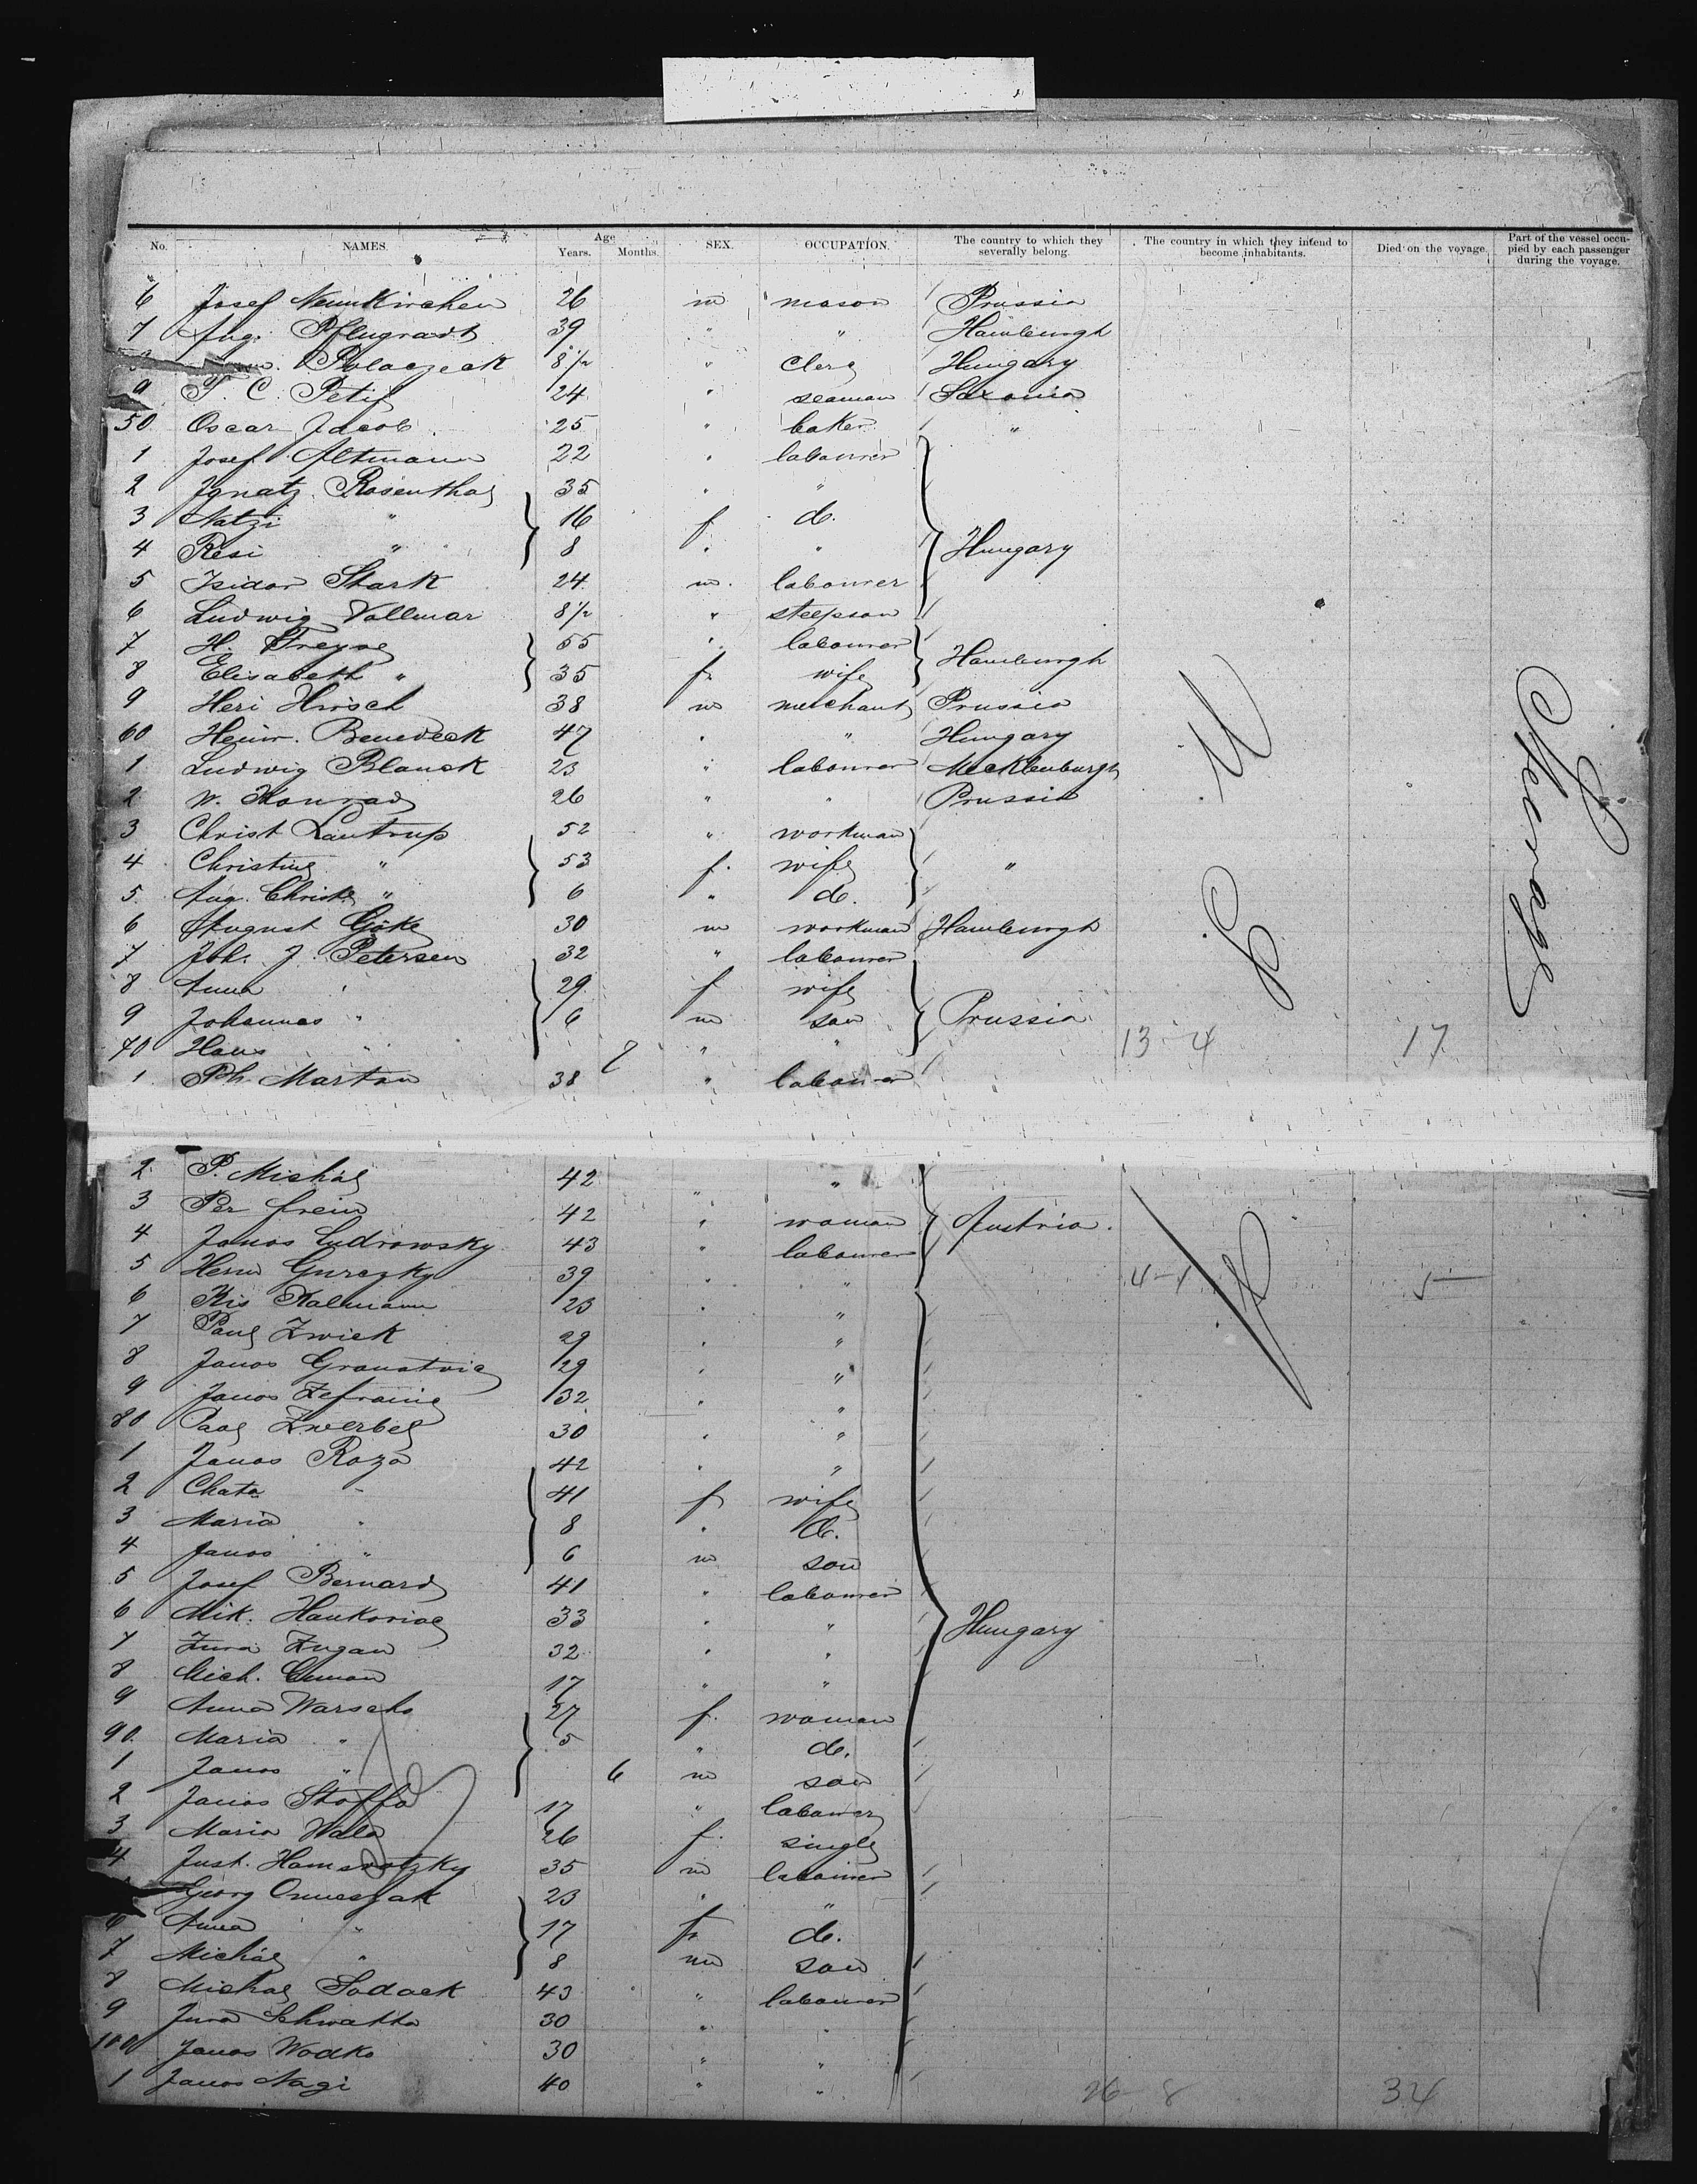 No. NAMES. Age Years. Months. SEX. OCCUPATION. The country to which they severally belong. The country in which they intend to become inhabitants. Died on the voyage. Part of the vessel occupied by each passenger during the voyage.
6 Josef Neunkirchen 26 m mason Prussia
7 Aug. Pflugradt 39 " " Hamburgh
Polaczeck 8 1/2 " Clerg Hungary
9 T. C. Petif 24 " seaman Saxonia
50 Oscar Jacob 25 " baker "
1 Josef Altmann 22 " labourer
2 Ignatz Rosenthal 35 " "
3 Natzi " 16 f. do.
4 Resi " 8 " " Hungary
5 Isidor Stark 24 m. labourer
6 Ludwig Vollmar 8 1/2 " steepson
7 H. Freyse 55 " labourer
8 Elisabeth " 35 f. wife Hamburgh
9 Heri Hirsch 38 m merchant Prussia
60 Heinr. Benedeck 47 " " Hungary
1 Ludwig Blanck 23 " labourer Mecklenburgh
2 W. Konrad 26 " " Prussia
3 Christ Lautrup 52 " workman
4 Christine " 53 f. wife "
5. Aug. Christ. " 6 " do.
6 August Göke 30 m workman Hamburgh
7 Joh. J. Petersen 32 " labourer
8 Anna " 29 f wife
9 Johannes " 6 m son Prussia
70 Hans " " " 13-4 17
1 Ph. Marton 38 " labourer
U S
Steerage
2 P. Mishal 42 " "
3 Per frein 42 " woman Austria.
4 Janos Ludrowsky 43 " labourer
5 Herm Gurezky 39 " " 4-1 5
6 Kis Kalmann 23 " "
7 Paul Zwick 29 " "
8 Janos Granatvic 29 " "
9 Janos Zefraing 32 " "
80 Paol Zwerbel 30 " "
1 Janos Roza 42 " "
2 Chata " 41 f wife
3 Maria " 8 " do.
4 Janos " 6 m son
5 Josef Bernard 41 " labourer
6 Mik. Hankoriac 33 " " Hungary
7 Zura Zugan 32 " "
8 Mich. 17 " "
9 Anna Warscho 27 f. woman
90. Maria " 5 " do.
1 Janos " 6 m son
2 Janos Stoffa 17 " labourer
3 Maria Hala 26 f. single
4 Just. 35 m labourer
Georg 23 " "
6 Anna " 17 f. do.
7 Michal " 8 m son
8 Michal Sodack 43 " labourer
9 Jura Schwatta 30 " "
100 Janos Wodko 30 " "
1 Janos Nagi 40 " " 26 8 34